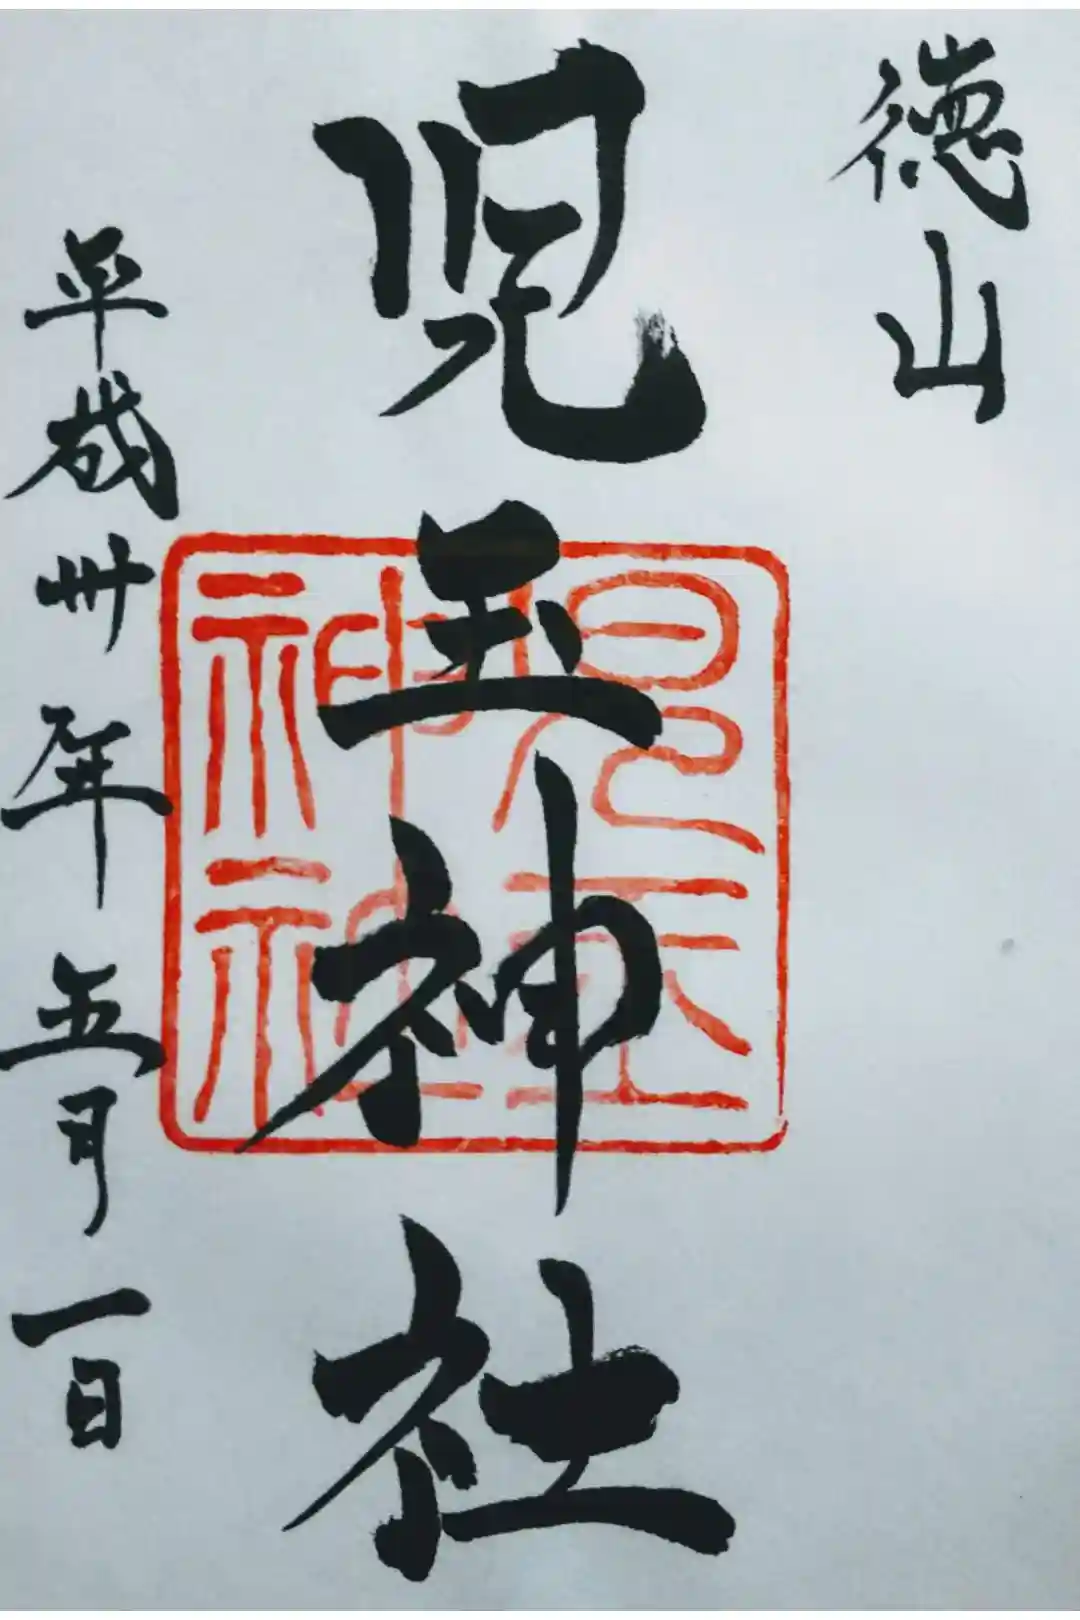 徳山
児玉神社
平成卅年五月一日
児玉
神社